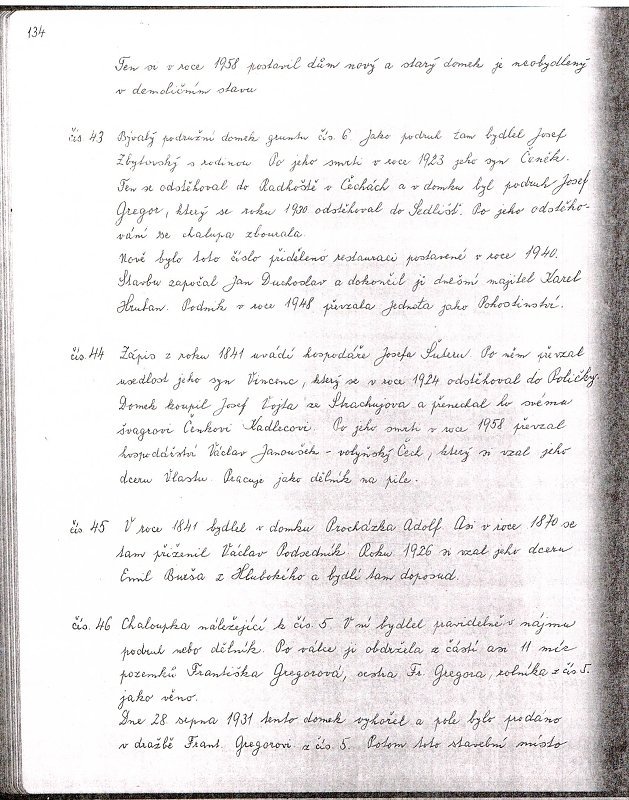 134
Ten si v roce 1958 postavil dům nový a starý domek je neobydlený
v demoličním stavu
čís 43 Bývalý podružní domek gruntu čís. 6 Jako podruh tam bydlel Josef
Zbytovský s rodinou Po jeho smrti v roce 1923 jeho syn Čeněk.
Ten se odstěhoval do Radhoště v Čechách a v domku byl podruh Josef
Gregor, který se roku 1930 odstěhoval do Sedlišť. Po jeho odstěho-
vání se chalupa zbourala.
Nově bylo toto číslo přiděleno restauraci postavené v roce 1940.
Stavbu započal Jan Duchoslav a dokončil ji dnešní majitel Karel
Hruban. Podnik v roce 1948 převzala Jednota jako Pohostinství.
čís. 44 Zápis z roku 1841 uvádí hospodáře Josefa Šuteru. Po něm převzal
usedlost jeho syn Vincenc, který se v roce 1924 odstěhoval do Poličky.
Domek koupil Josef Vojta ze Strachujova a přenechal ho svému
švagrovi Čenkovi Kadlecovi. Po jeho smrti v roce 1958 převzal
hospodářství Václav Janoušek - volyňský Čech, který si vzal jeho
dceru Vlastu. Pracuje jako dělník na pile.
čís 45 V roce 1841 bydlel v domku Procházka Adolf. Asi v roce 1870 se
tam přiženil Václav Podsedník. Roku 1926 si vzal jeho dceru
Emil Bureša z Hlubokého a bydlí tam doposud.
čís. 46 Chaloupka náležející k čís. 5 V ní bydlel pravidelně v nájmu
podruh nebo dělník. Po válce ji obdržela z částí asi 11 měr
pozemků Františka Gregorová, sestra Fr. Gregora, rolníka z čís 5.
jako věno.
Dne 28 srpna 1931 tento domek vyhořel a pole bylo prodáno
v dražbě Frant. Gregorovi z čís 5. Potom toto stavební místo